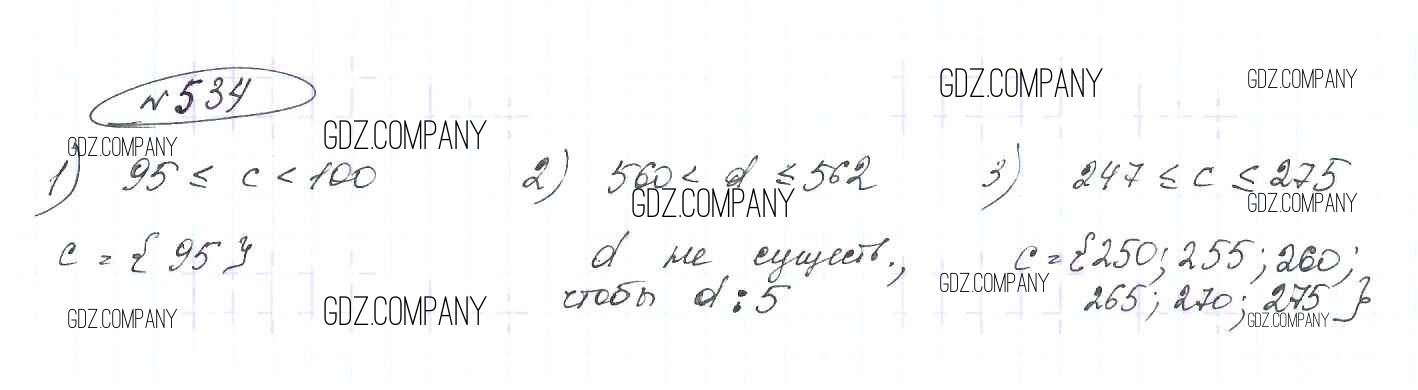 № 534
1) 95 ≤ c < 100
c = { 95 }
2) 560 < d ≤ 562
d не существ.,
чтобы d ⋮ 5
3) 247 ≤ c ≤ 275
c = {250; 255; 260;
265; 270; 275}
GDZ.COMPANY
GDZ.COMPANY
GDZ.COMPANY
GDZ.COMPANY
GDZ.COMPANY
GDZ.COMPANY
GDZ.COMPANY
GDZ.COMPANY
GDZ.COMPANY
GDZ.COMPANY